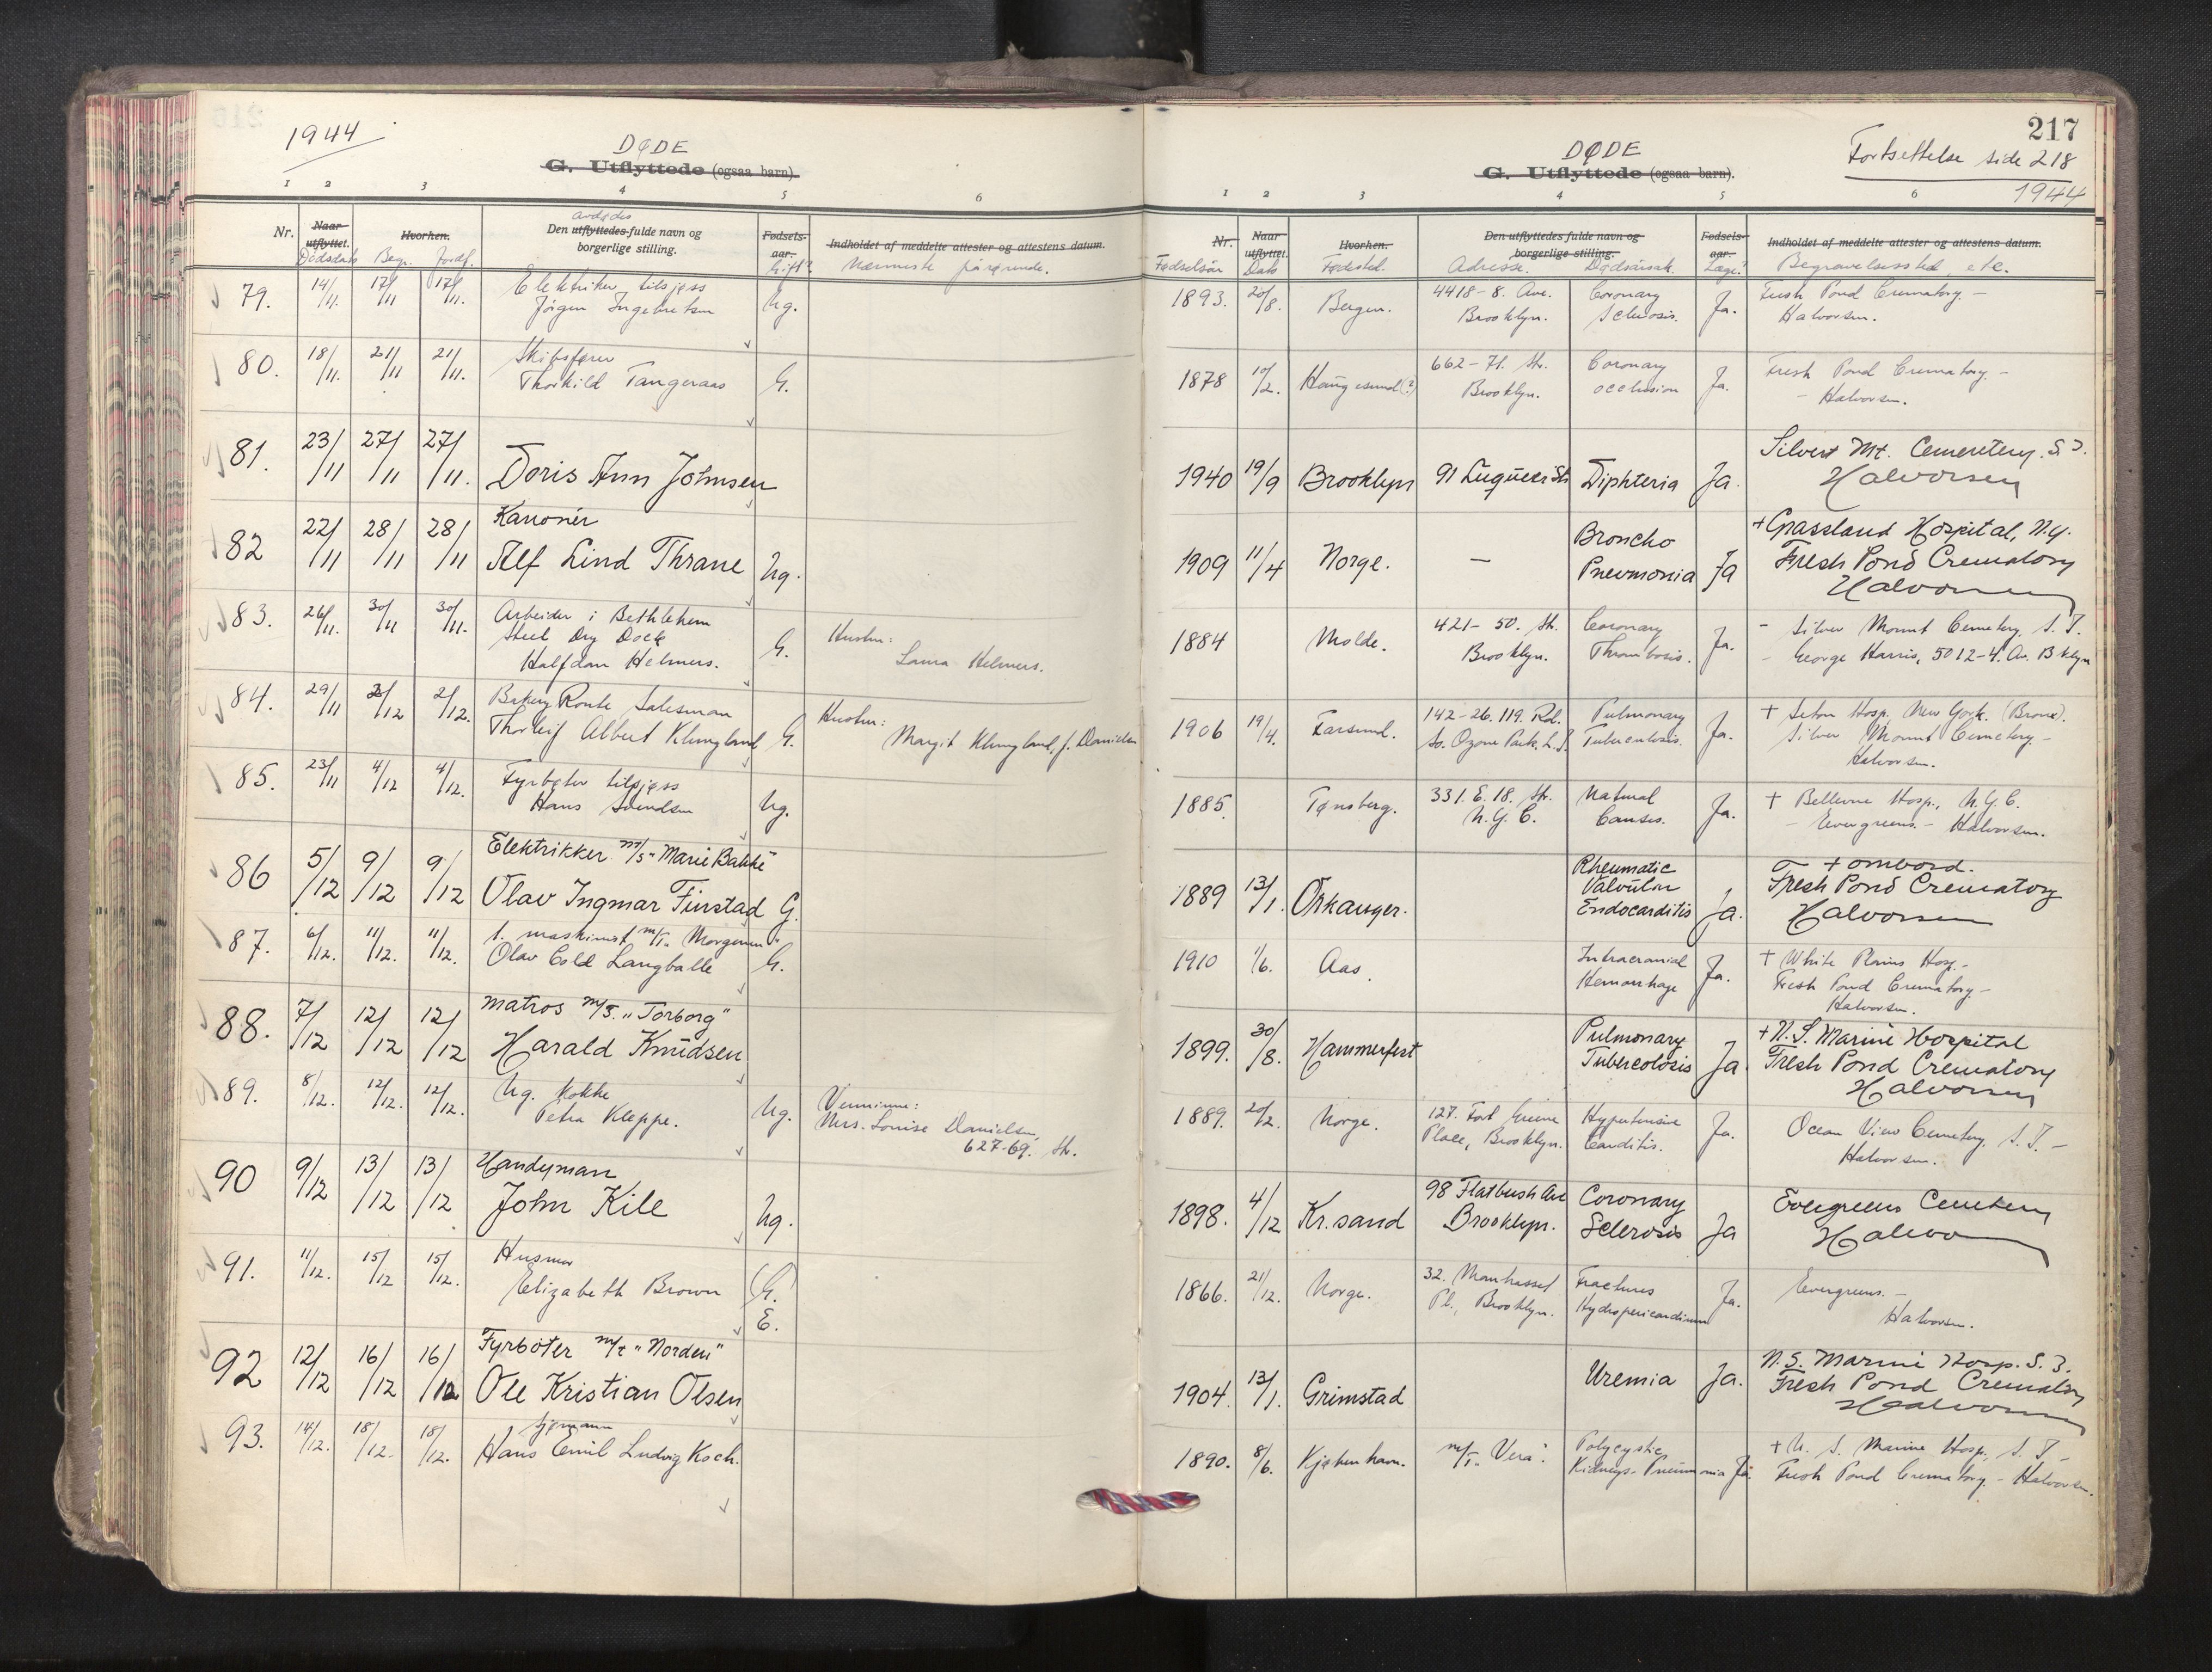 1944
DØDE
G. Utflyttede (ogsaa barn).
1 2 3 4 5 6
Nr.
Naar utflyttet.
Dødsdato
Hvorhen.
Begr. Jordf.
avdødes
Den utflyttedes fulde navn og
borgerlige stilling.
Fødsels-
aar.
Gift?
Indholdet af meddelte attester og attestens datum.
Nærmeste pårørende.
79. 14/11. 17/11 17/11. Elektriker tilsjøss
Jörgen Ingebretsen Ug.
80. 18/11. 21/11 21/11. Skibsfører
Thorkild Tangeraas G.
81. 23/11 27/11 27/11. Doris Ann Johnsen
82 22/11 28/11 28/11 Kanonér
Alf Lind Thrane Ug.
83. 26/11. 30/11 30/11. Arbeider i Bethlehem
Steel Dry Dock
Halfdan Helmers. G. Hustru:
Laura Helmers.
84. 29/11 2/12 2/12. Bakery Route Salesman
Thorleif Albert Klungland G. Hustru:
Margit Klungland, f. Danielsen
85. 23/11 4/12 4/12. Fyrbøter tilsjøss
Hans Svendsen Ug.
86 5/12 9/12 9/12 Elektrikker m/s "Marie Bakke"
Olav Ingmar Finstad G.
87. 6/12. 11/12. 11/12. 1. maskinist m/T. Morgenen"
Olav Cold Langballe G.
88. 7/12 12/12 12/12 Matros m/s. "Torborg"
Harald Knudsen
89. 8/12. 12/12. 12/12. Ug. Kokke
Petra Kleppe. Ug. Venninne:
Mrs. Louise Danielsen,
627-69. Str.
90 9/12 13/12 13/12 Handyman
John Kile Ug.
91. 11/12. 15/12 15/12. Husmor
Elizabeth Brown (G.)
E.
92 12/12 16/12 16/12 Fyrböter m/t "Norden"
Ole Kristian Olsen
93. 14/12. 18/12. 18/12. Sjømann
Hans Emil Ludvig Koch.
217
Fortsettelse side 218
1944
DØDE
G. Utflyttede (ogsaa barn).
1 2 3 4 5 6
Nr.
Fødselsår
Naar utflyttet.
Dato
Hvorhen.
Fødested.
Den utflyttedes fulde navn og
borgerlige stilling.
Adresse. Dødsårsak.
Fødsels-
aar.
Læge?
Indholdet af meddelte attester og attestens datum.
Begravelsessted, etc.
1893. 20/8. Bergen. 4418-8. Ave.
Brooklyn. Coronary
Sclerosis. Ja. Fresh Pond Crematory -
Halvorsen.
1878 10/2. Haugesund(?) 662-71. Str.
Brooklyn. Coronary
occlusion Ja. Fresh Pond Crematory. -
- Halvorsen.
1940 19/9 Brooklyn 91 Luqueer St. Diphteria Ja. Silver Mt. Cemeretery. S.I.
Halvorsen
1909 11/4 Norge. — Broncho
Pneumonia Ja + Grassland Hospital, N.Y.
Fresh Pond Crematory
Halvorsen
1884 Molde. 421-50. St.
Brooklyn. Coronary
Thrombosis. Ja. - Silver Mount Cemetery, S.I.
- George Harris, 5012-4. Av. Bklyn
1906 19/4. Farsund. 142-26. 119. Rd.
So. Ozone Park, L.I. Pulmonary
Tuberculosis. Ja. + Seton Hosp. New York. (Bronx).
Silver Mount Cemetery. -
Halvorsen.
1885. Tønsberg. 331. E. 18. Str.
N.Y.C. Natural
Causes. Ja. + Bellevue Hosp., N.Y.C.
- Evergreens. - Halvorsen.
1889 13/1. Orkanger. Rheumatic
Valvular
Endocarditis Ja. + ombord.
Fresh Pond Crematory
Halvorsen
1910 1/6. Aas. Intracranial
Hemorrhage Ja. + White Plains Hosp. -
Fresh Pond Crematory -
Halvorsen.
1899. 30/8. Hammerfest Pulmonary
Tubercolosis Ja + U.S. Marine Hospital
Fresh Pond Crematory
Halvorsen
1889. 20/2. Norge. 127. Fort Greene
Place, Brooklyn. Hypertensive
Carditis. Ja. Ocean View Cemetery, S.I. -
Halvorsen.
1898. 4/12 Kr.sand 98 Flatbush Ave
Brooklyn. Coronary
Sclerosis Ja Evergreens Cemetery
Halvorsen
1866. 21/12. Norge. 32. Manhasset
Pl., Brooklyn. Fractures
Hydropericardium Ja. Evergreens. -
Halvorsen.
1904. 13/1. Grimstad Uremia Ja. U.S. Marine Hosp. S.I.
Fresh Pond Crematory
Halvorsen
1890. 8/6. Kjøbenhavn. m/T. "Vera". Polycystic
Kidneys - Pneumonia Ja. + U.S. Marine Hosp., S.I. -
Fresh Pond Crematory. - Halvorsen.